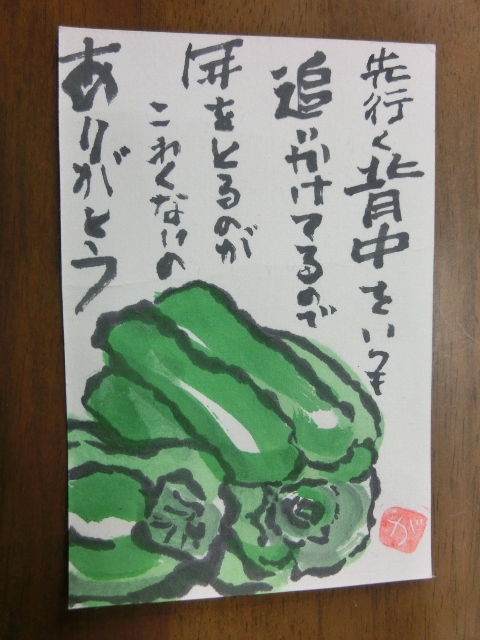 先行く背中をいつも
追いかけてるので
年をとるのが
こわくないの
ありがとう
が